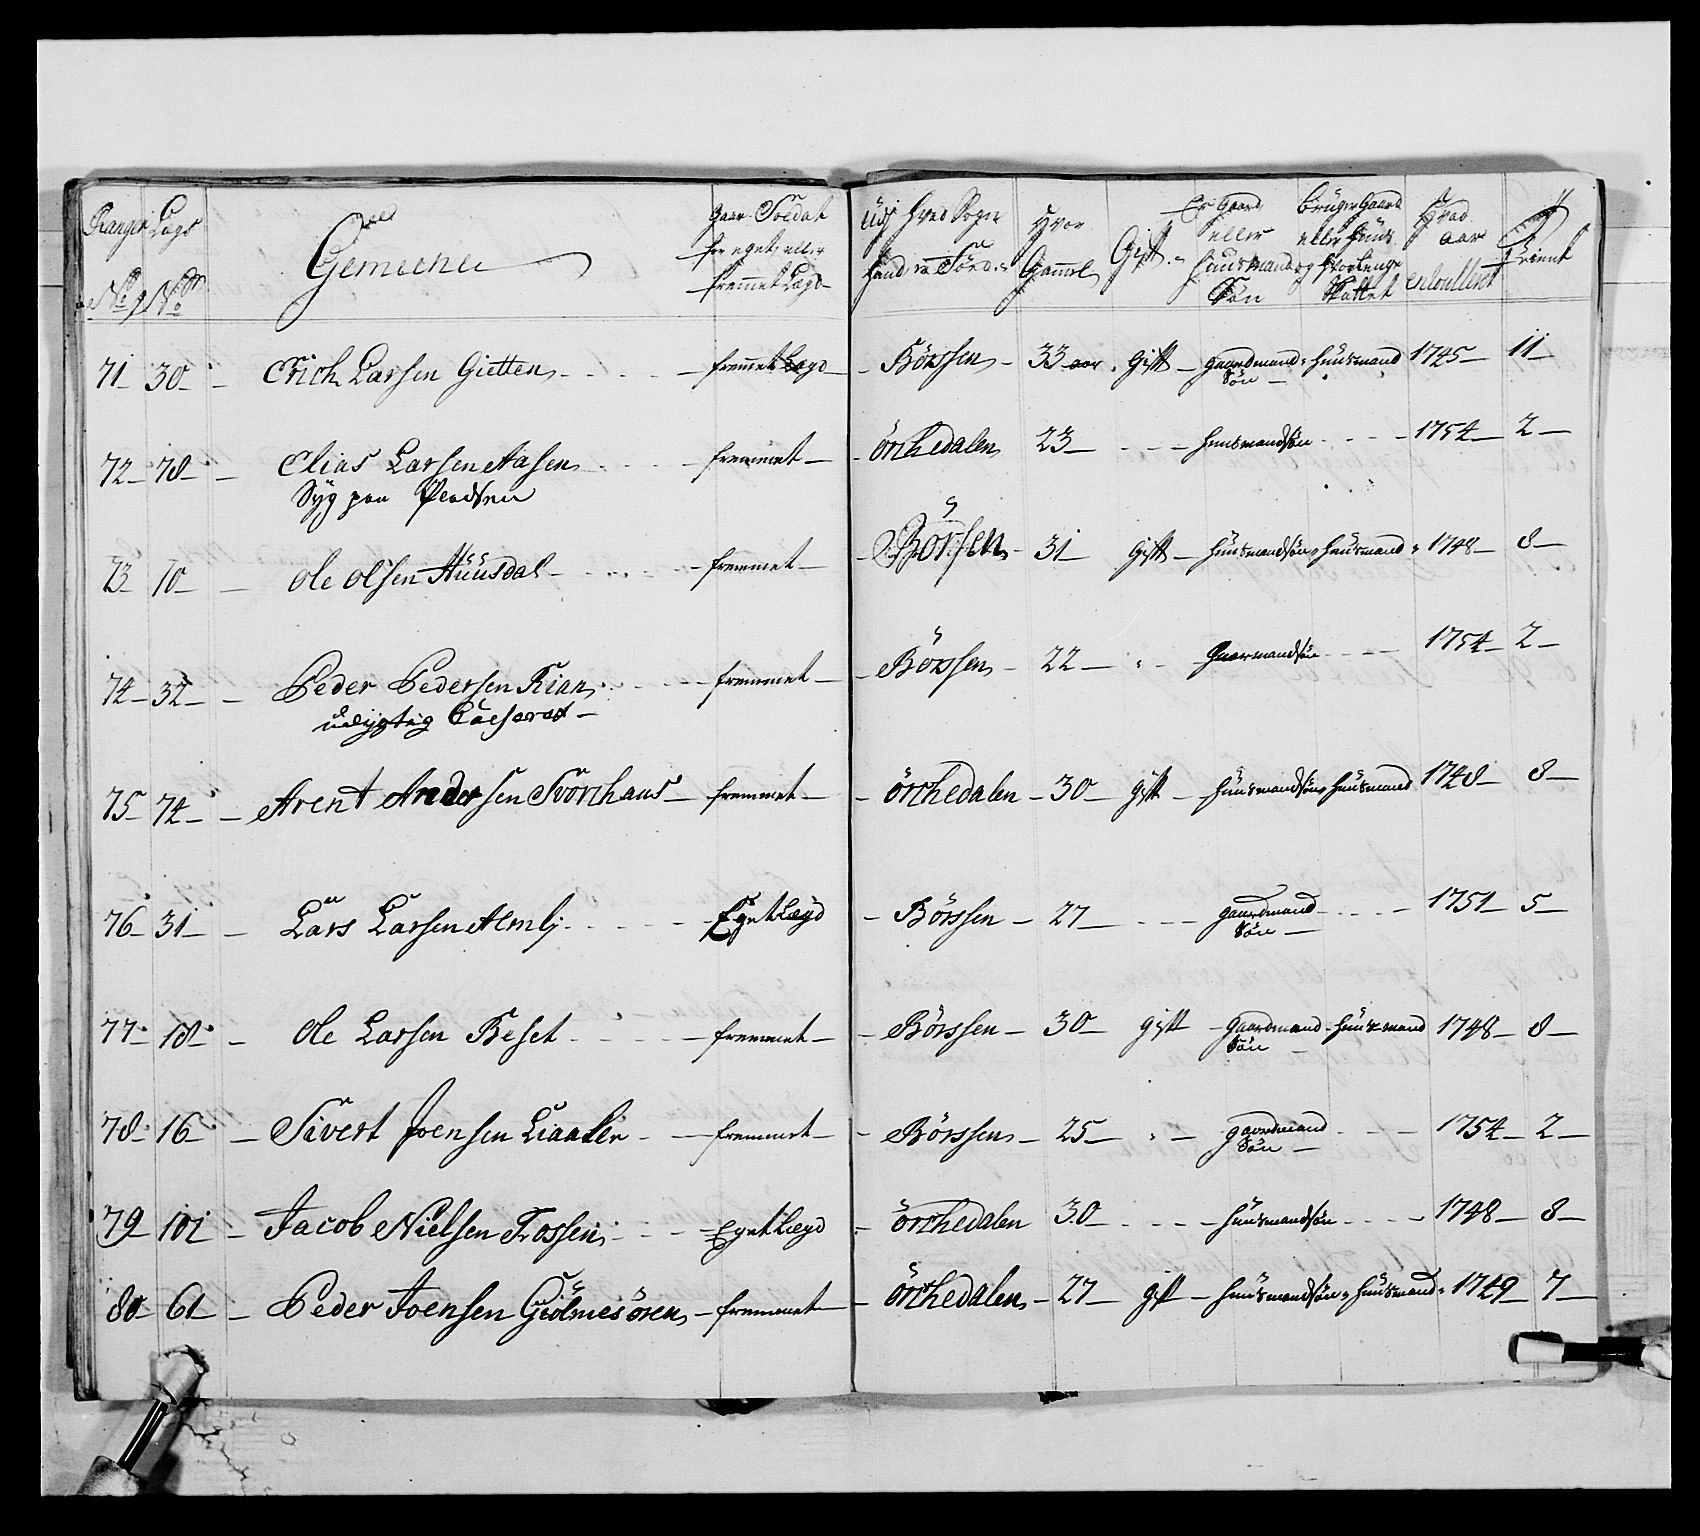 Ranger Lags Gemeene gaar Soldat for eget eller fremmet Lægd Udj Hvad Sogn Hvor Gammel Gift Er Gaard eller Huusmands Søn Bruger Gaard eller Huus Hvad aar enroullert Tient
No No
71 30 Erich Larsen Gietten fremmet Lægd Börssen 33 aar Gift gaardmand Søn huusmand 1745 11
72 78 Elias Larsen Aasen fremmet örchedalen 23 huusmandsön 1754 2
Syg paa Pladsen
73 10 Ole Olsen Huusdal fremmet Börsen 31 Gift huusmandsön huusmand 1748 8
74 32 Peder Pedersen Rian fremmet Börssen 22 gaarmandsön 1754 2
udygtig Casseret
75 74 Arent Andersen Svorchaus fremmet örchedalen 30 gift huusmandsön huusmand 1748 8
76 31 Lars Larsen Almlj Eget Lægd Börssen 27 gaardmand Søn 1751 5
77 18 Ole Larsen Beset fremmet Börssen 30 gift gaardmand Søn huusmand 1748 8
78 16 Sivert Joensen Liaalien fremmet Börssen 25 gaardmand Søn 1754 2
79 101 Jacob Nielsen Fossen Eget Lægd örchedalen 30 huusmandsön 1748 8
80 61 Peder Joensen Giölmesören fremmet örchedalen 27 gift huusmandsön huusmand 1749 7